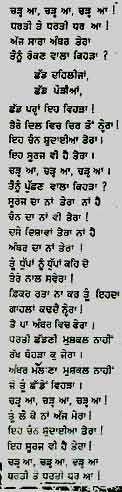 ਚੜ੍ਹ ਆ, ਚੜ੍ਹ ਆ, ਚੜ੍ਹ ਆ !
ਧਰਤੀ ਤੇ ਧਰਤੀ ਧਰ ਆ !
ਅੱਜ ਸਾਰਾ ਅੰਬਰ ਤੇਰਾ
ਤੈਨੂੰ ਰੋਕਣ ਵਾਲਾ ਕਿਹੜਾ ?
ਛੱਡ ਦਹਿਲੀਜਾਂ,
ਛੱਡ ਪੌੜੀਆਂ,
ਛੱਡ ਪਰ੍ਹਾਂ ਇਹ ਵਿਹੜਾ !
ਤੇਰੇ ਦਿਲ ਵਿਚ ਚਿਰ ਤੋਂ ਨ੍ਹੇਰਾ !
ਇਹ ਚੰਨ ਸ਼ੁਦਾਈਆ ਤੇਰਾ !
ਇਹ ਸੂਰਜ ਵੀ ਹੈ ਤੇਰਾ ।
ਚੜ੍ਹ ਆ, ਚੜ੍ਹ ਆ, ਚੜ੍ਹ ਆ !
ਤੈਨੂੰ ਪੁੱਛਣ ਵਾਲਾ ਕਿਹੜਾ ?
ਸੂਰਜ ਦਾ ਨਾਂ ਤੇਰਾ ਨਾਂ ਹੈ
ਚੰਨ ਦਾ ਨਾਂ ਵੀ ਤੇਰਾ !
ਦਸੇ ਦਿਸ਼ਾਵਾਂ ਤੇਰਾ ਨਾਂ ਹੈ
ਅੰਬਰ ਦਾ ਨਾਂ ਤੇਰਾ !
ਤੂੰ ਧੁੱਪਾਂ ਨੂੰ ਧੁੱਪਾਂ ਕਹਿ ਦੇ
ਤੇਰੇ ਨਾਲ ਸਵੇਰਾ !
ਫ਼ਿਕਰ ਰਤਾ ਨਾ ਕਰ ਤੂੰ ਇਹਦਾ
ਗਾਹਲਾਂ ਕਢਦੈ ਨ੍ਹੇਰਾ !
ਤੂੰ ਪਾ ਅੰਬਰ ਵਿਚ ਫੇਰਾ !
ਧਰਤੀ ਛੱਡਣੀ ਮੁਸ਼ਕਲ ਨਾਹੀਂ
ਰੱਖ ਥੋਹੜਾ ਕੁ ਜੇਰਾ ।
ਅੰਬਰ ਮੱਲਣਾ ਮੁਸ਼ਕਲ ਨਾਹੀਂ
ਜੇ ਤੂੰ ਛੱਡੇਂ ਵਿਹੜਾ ।
ਚੜ੍ਹ ਆ, ਚੜ੍ਹ ਆ, ਚੜ੍ਹ ਆ !
ਤੂੰ ਲੈ ਕੇ ਨਾਂ ਅੱਜ ਮੇਰਾ !
ਇਹ ਚੰਨ ਸ਼ੁਦਾਈਆ ਤੇਰਾ !
ਇਹ ਸੂਰਜ ਵੀ ਹੈ ਤੇਰਾ !
ਚੜ੍ਹ ਆ, ਚੜ੍ਹ ਆ, ਚੜ੍ਹ ਆ
ਧਰਤੀ ਤੇ ਧਰਤੀ ਧਰ ਆ !